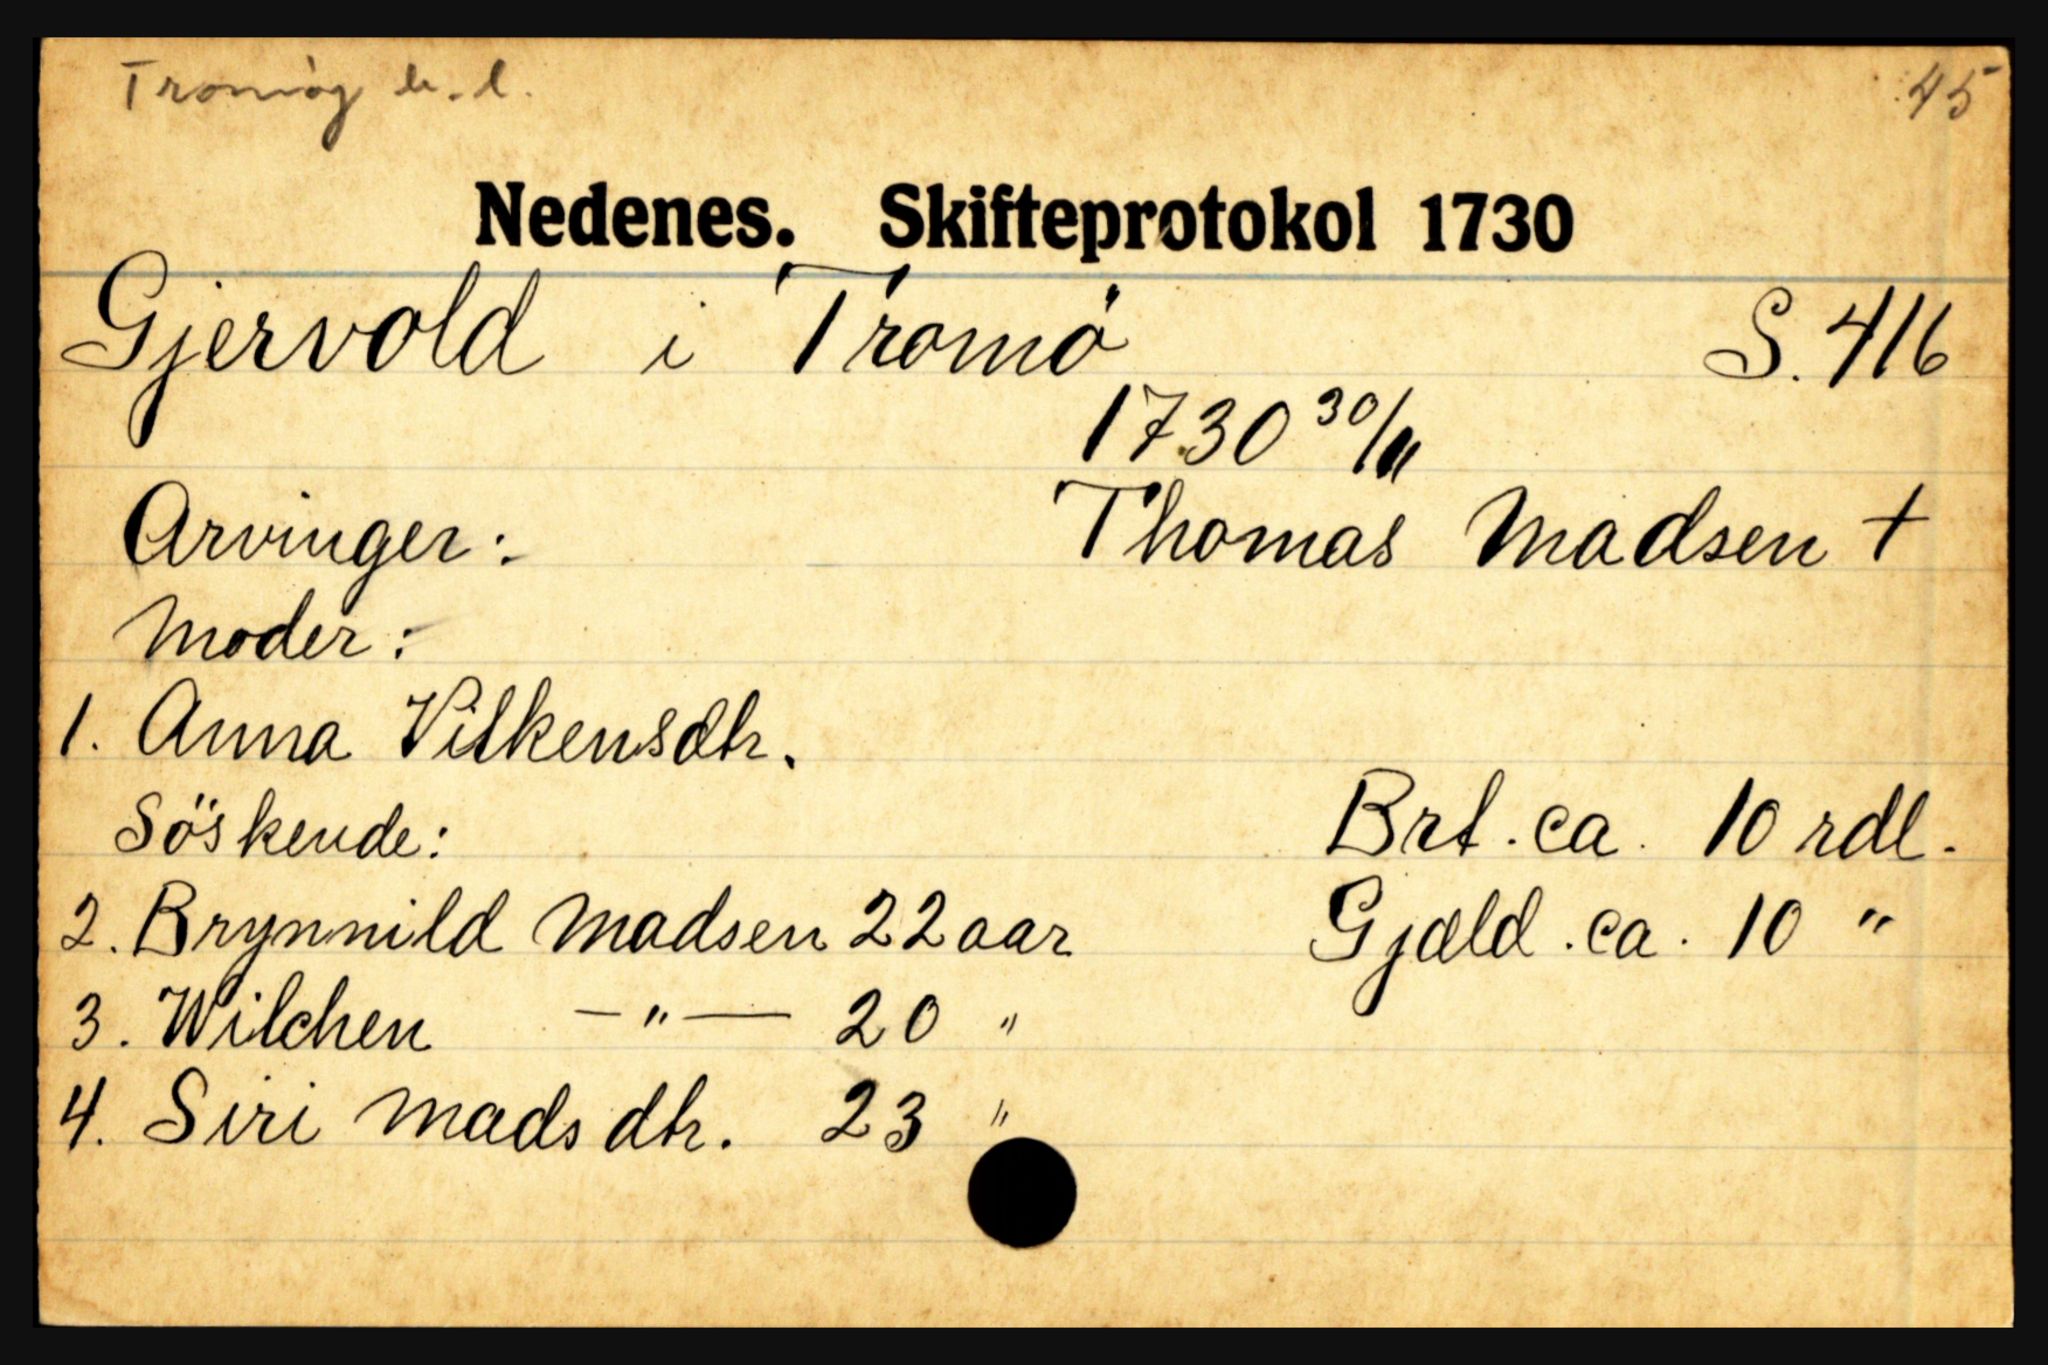 Tromøy h.d. 45
Nedenes. Skifteprotokol 1730
Gjervold i Tromö S. 416
1730 30/11
Arvinger: Thomas Madsen +
Moder:
1. Anna Vilkensdtr.
Söskende: Brt. ca. 10 rdl.
2. Brynnild Madsen 22 aar Gjæld. ca. 10 "
3. Wilchen —"— 20 "
4. Siri Madsdtr. 23 "